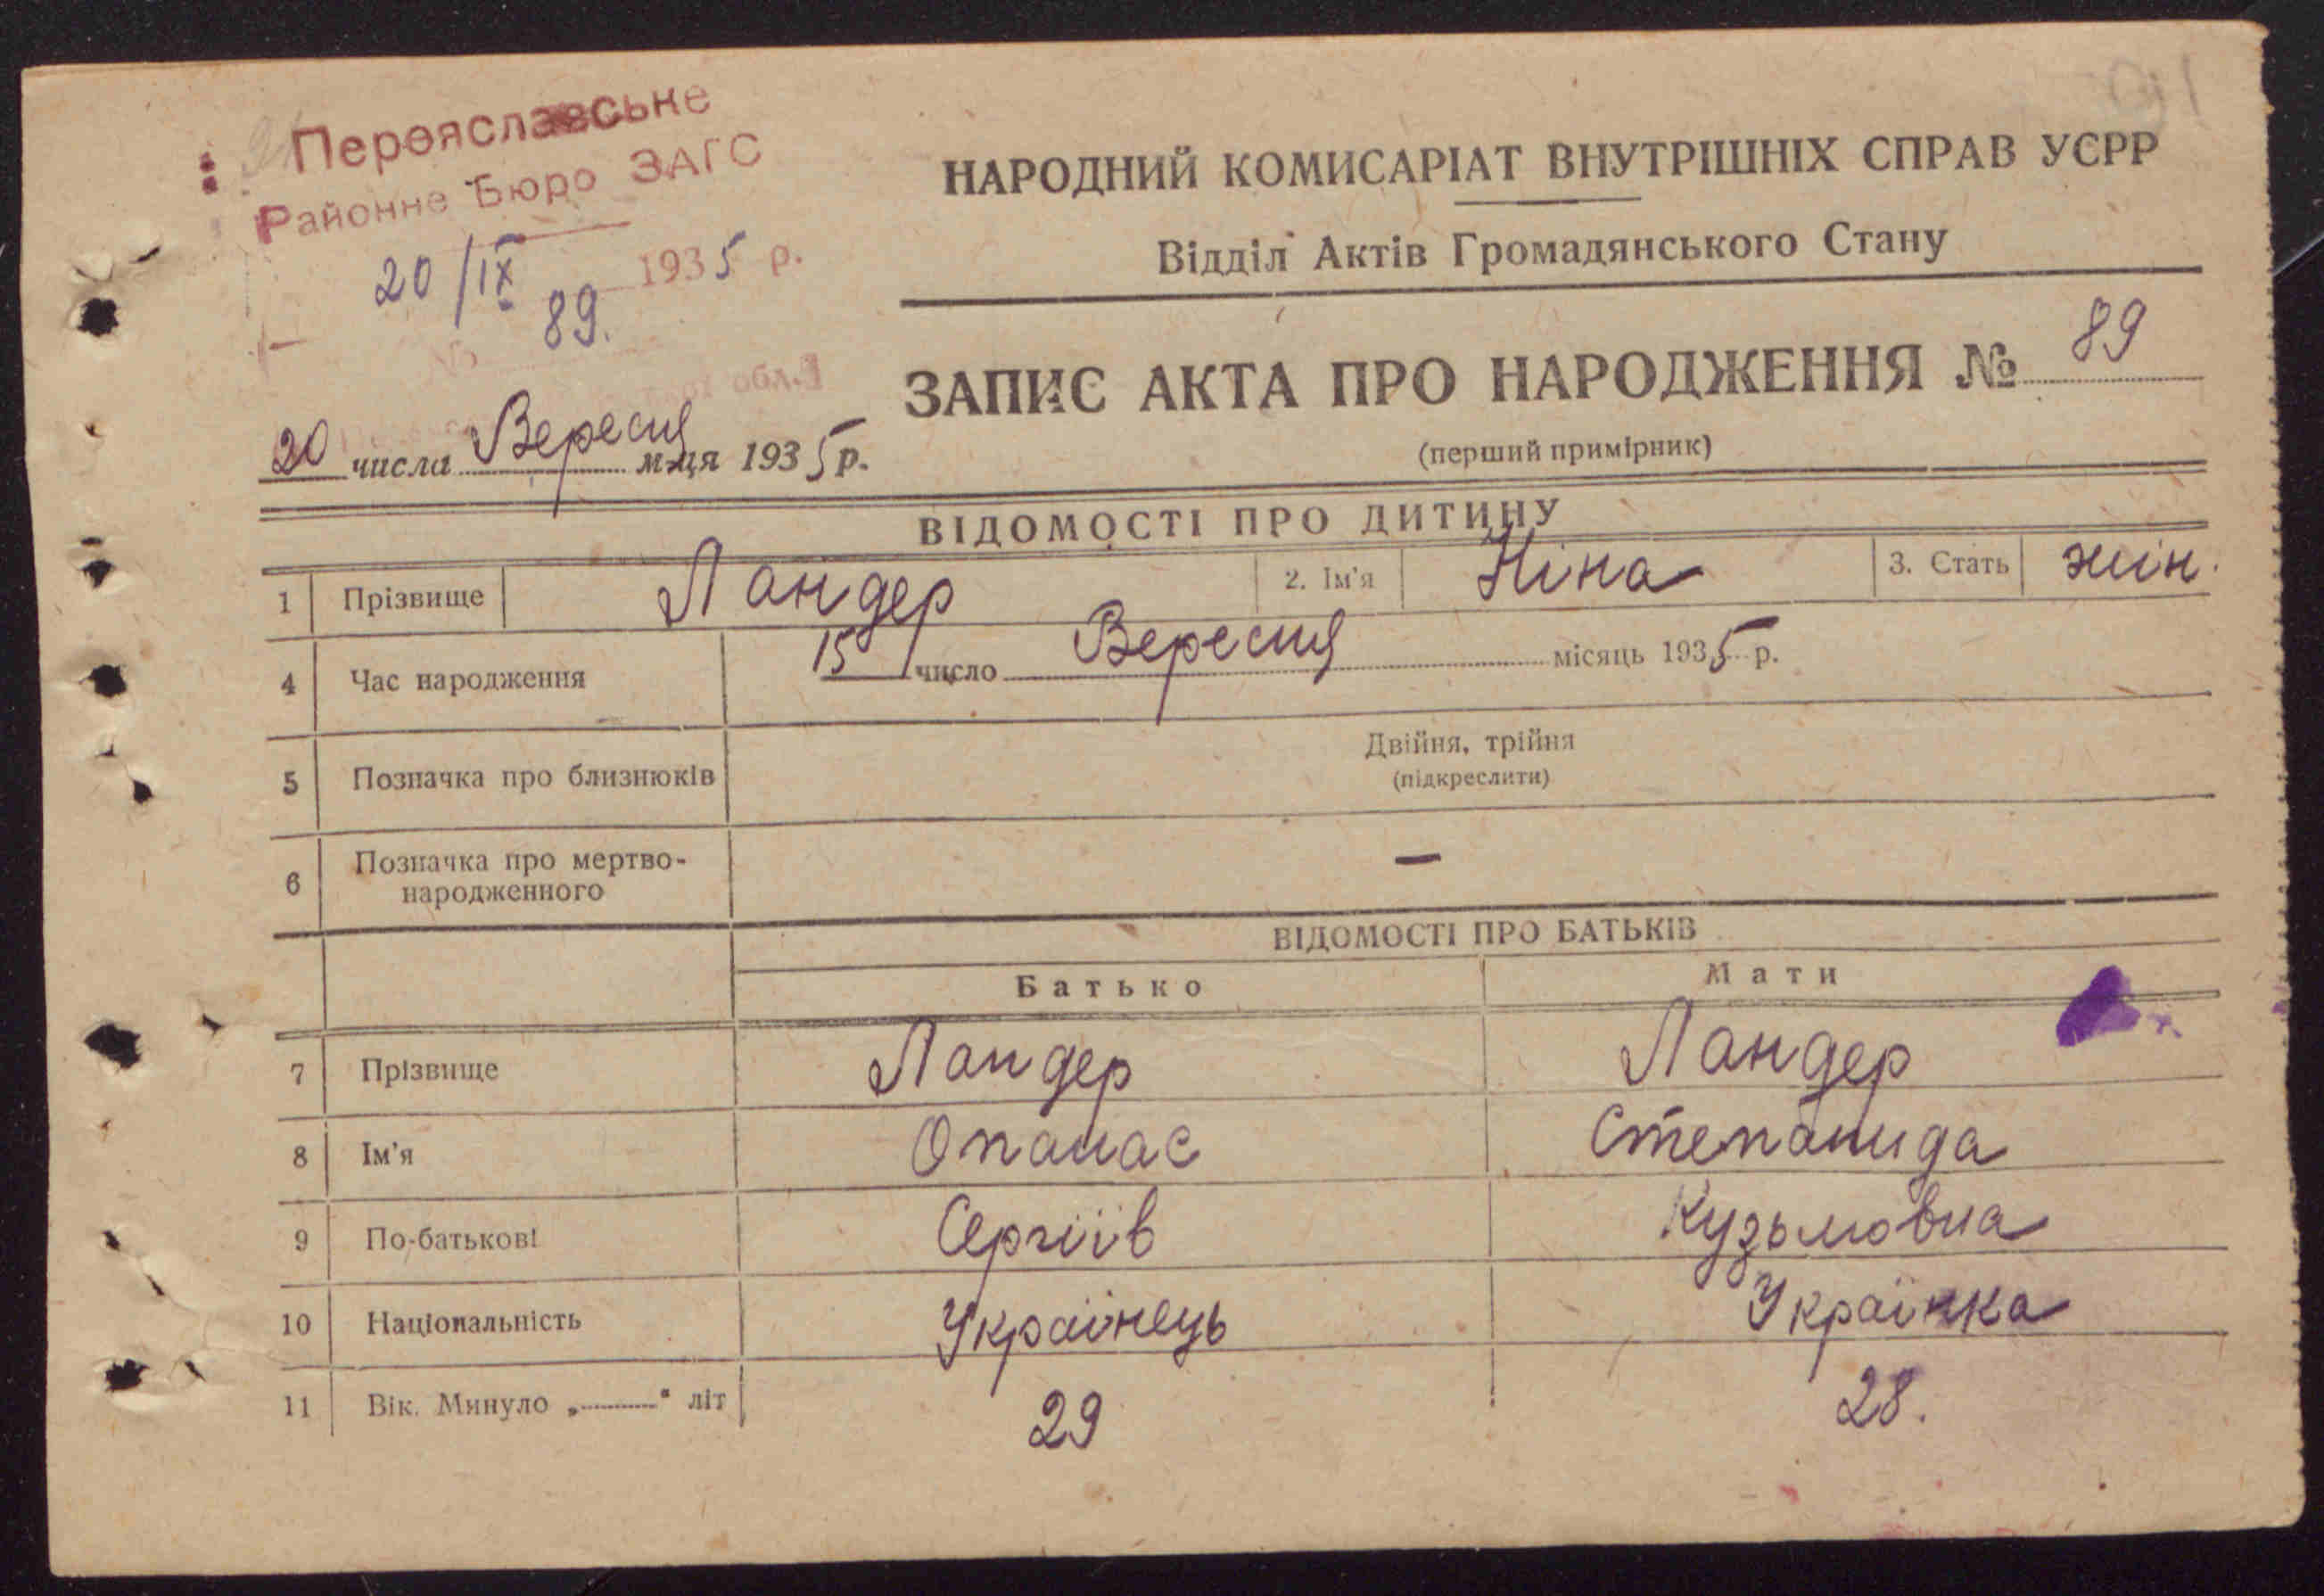 Переяславське
Районне Бюро ЗАГС
20/IX 1935 р.
№ 89.
обл.
НАРОДНИЙ КОМИСАРІАТ ВНУТРІШНІХ СПРАВ УСРР
Відділ Актів Громадянського Стану
ЗАПИС АКТА ПРО НАРОДЖЕННЯ № 89
(перший примірник)
20 числа Вересня м-ця 1935 р.
ВІДОМОСТІ ПРО ДИТИНУ
1 Прізвище Ландер 2. Ім'я Ніна 3. Стать жін.
4 Час народження 15 число Вересня місяць 1935 р.
5 Позначка про близнюків Двійня, трійня
(підкреслити)
6 Позначка про мертво-
народженного —
ВІДОМОСТІ ПРО БАТЬКІВ
Батько Мати
7 Прізвище Ландер Ландер
8 Ім'я Опанас Степанида
9 По-батькові Сергіїв Кузьмовна
10 Національність Українець Українка
11 Вік. Минуло „ “ літ 29 28.